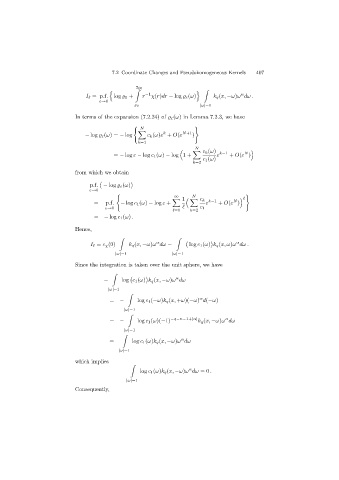 7.3 Coordinate Changes and Pseudohomogeneous Kernels 407
I_ℓ = p.f._{ε→0} { log ρ_0 + ∫_{ρ_0}^{2ρ_0} r^{-1} χ(r) dr − log ρ_ε(ω) } ∫_{|ω|=1} k_q(x, −ω) ω^α dω .
In terms of the expansion (7.2.24) of ρ_ε(ω) in Lemma 7.2.3, we have
− log ρ_ε(ω) = − log { ∑_{k=1}^{N} c_k(ω) ε^k + O(ε^{N+1}) }
= − log ε − log c_1(ω) − log { 1 + ∑_{k=2}^{N} c_k(ω)/c_1(ω) ε^{k−1} + O(ε^N) }
from which we obtain
p.f._{ε→0} ( − log ρ_ε(ω) )
= p.f._{ε→0} { − log c_1(ω) − log ε + ∑_{ℓ=1}^{∞} 1/ℓ ( ∑_{k=2}^{N} c_k/c_1 ε^{k−1} + O(ε^N) )^ℓ }
= − log c_1(ω) .
Hence,
I_ℓ = c_χ(0) ∫_{|ω|=1} k_q(x, −ω) ω^α dω − ∫_{|ω|=1} ( log c_1(ω) ) k_q(x, ω) ω^α dω .
Since the integration is taken over the unit sphere, we have
− ∫_{|ω|=1} log ( c_1(ω) ) k_q(x, −ω) ω^α dω
= − ∫_{|ω|=1} log c_1(−ω) k_q(x, +ω)(−ω)^α d(−ω)
= − ∫_{|ω|=1} log c_1(ω)(−1)^{−q−n−1+|α|} k_q(x, −ω) ω^α dω
= ∫_{|ω|=1} log c_1(ω) k_q(x, −ω) ω^α dω
which implies
∫_{|ω|=1} log c_1(ω) k_q(x, −ω) ω^α dω = 0 .
Consequently,